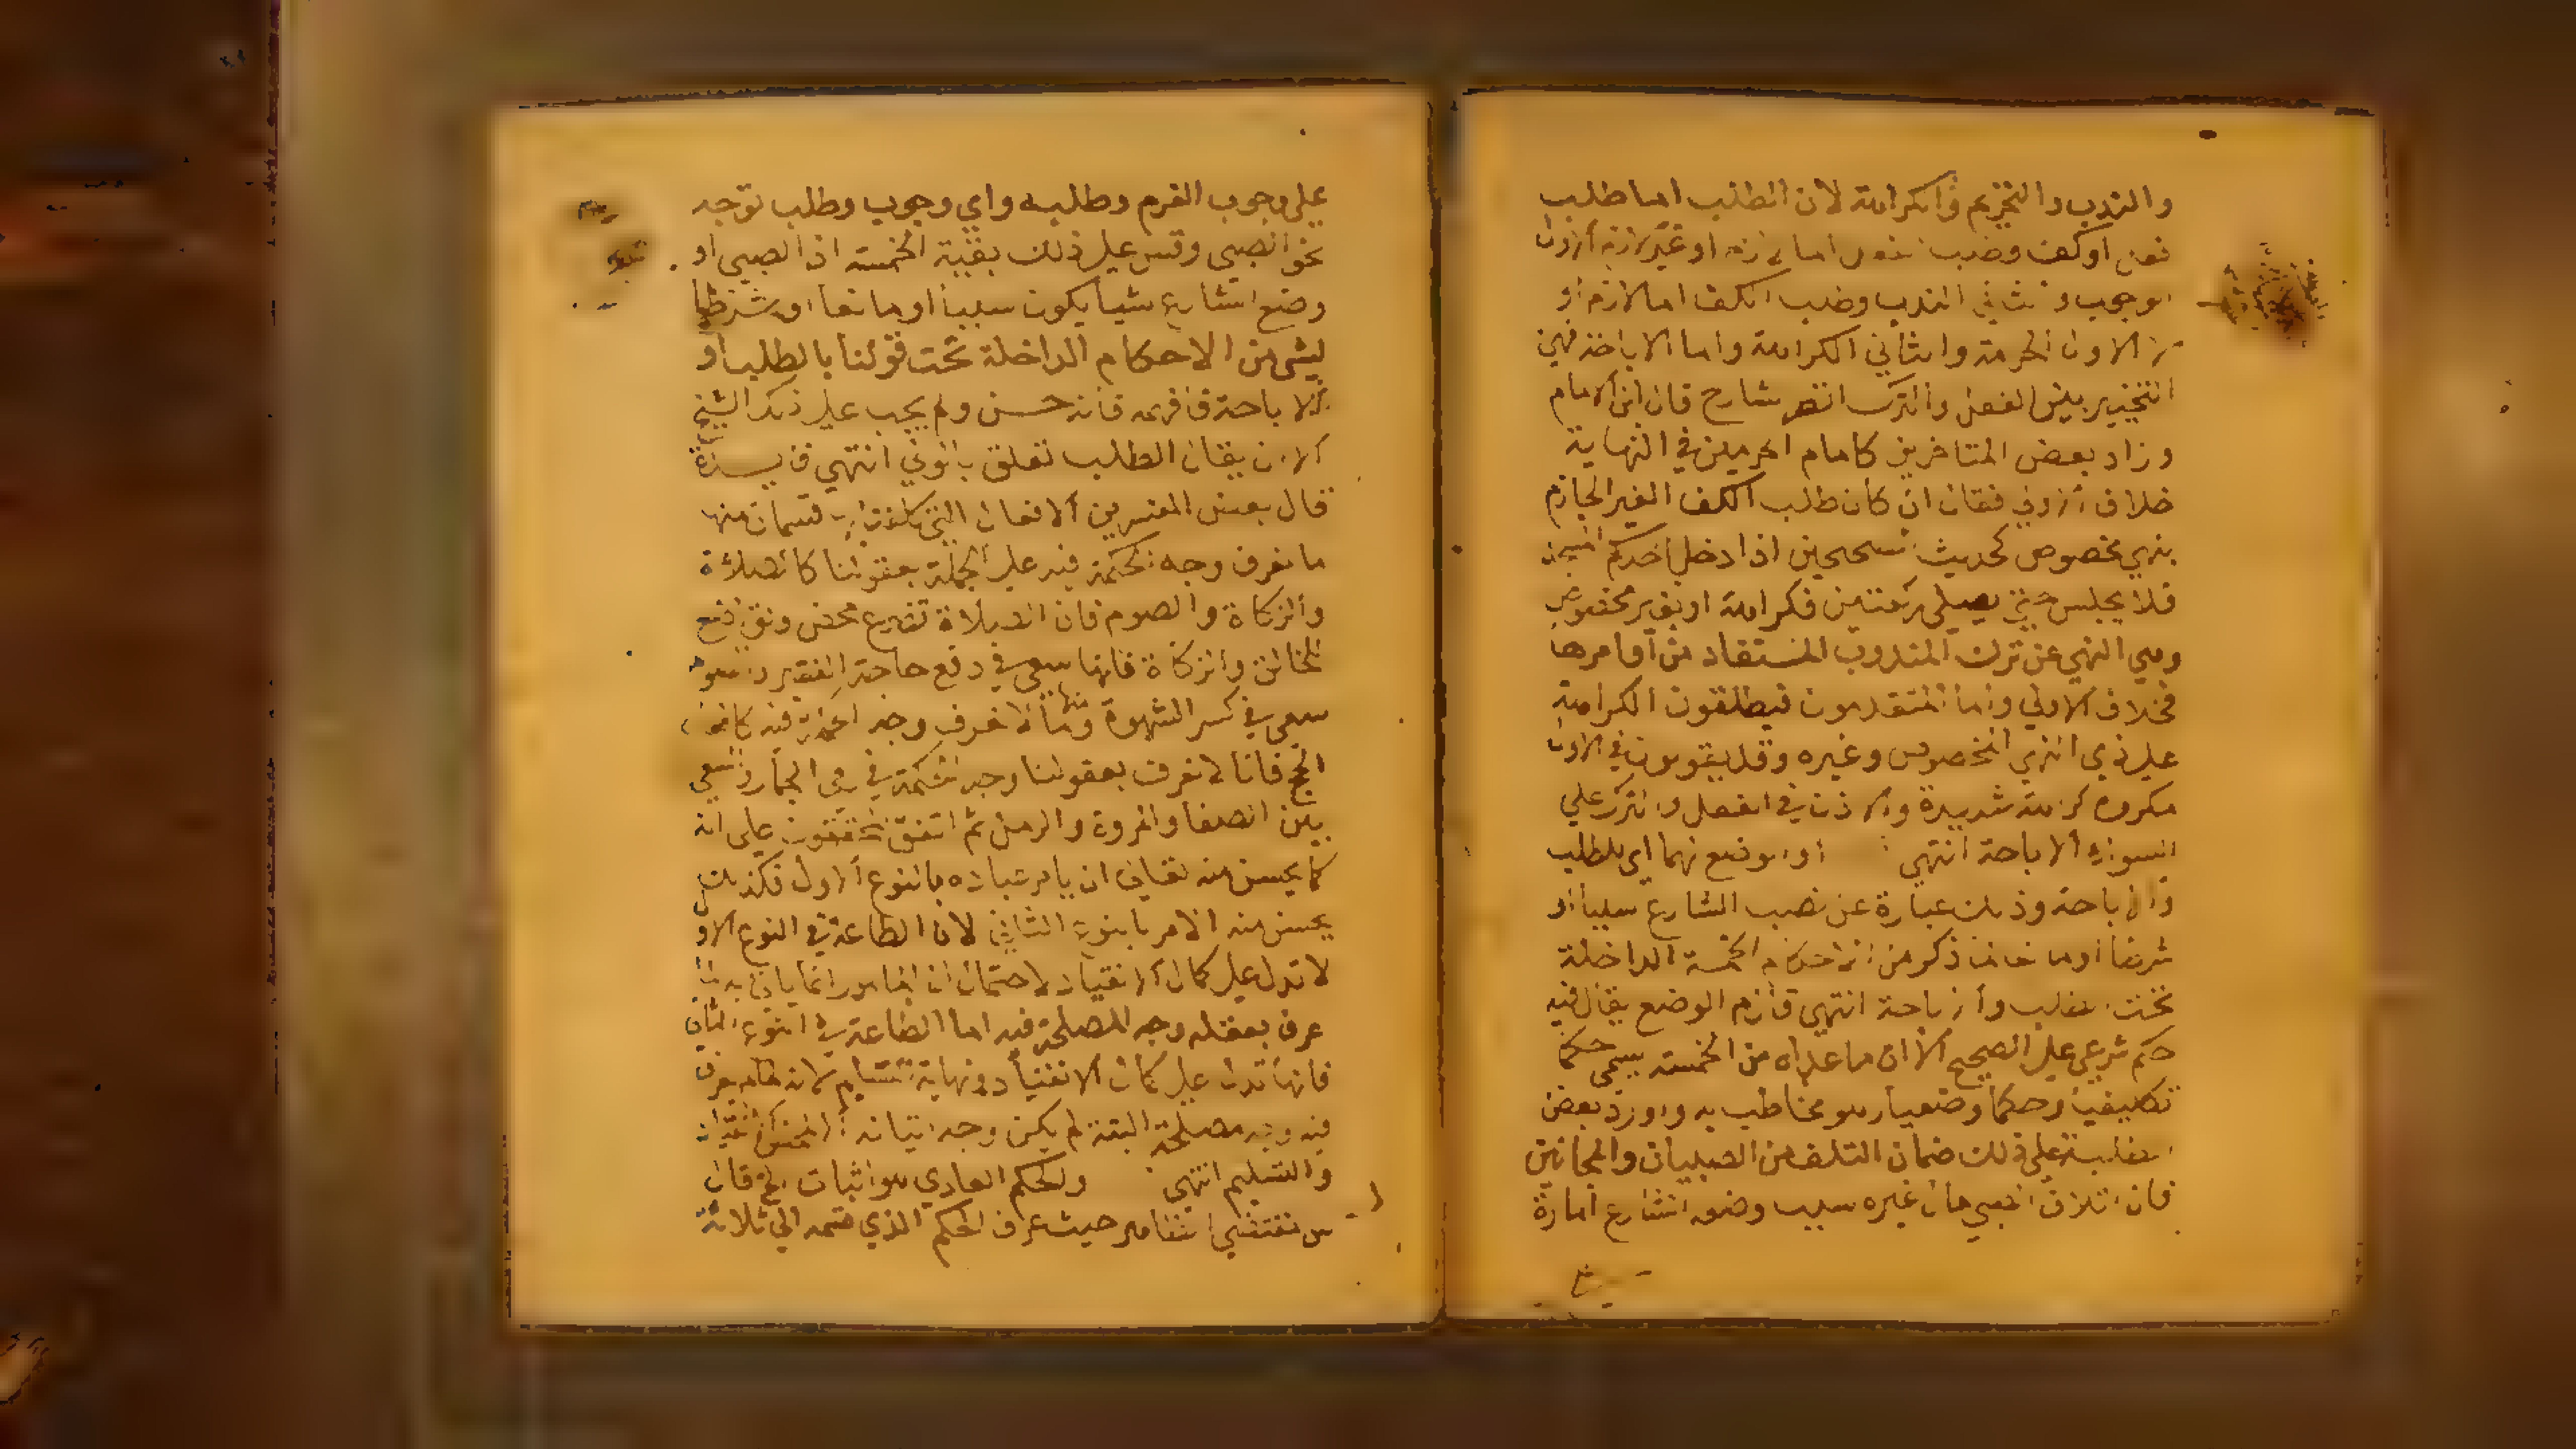 والندب والتحريم والكراهة لان الطلب اما طلب
فعل او كف وطلب الفعل اما لازم او غير لازم الاول
الوجوب والثاني الندب وطلب الكف اما لازم او
لا الاول الحرمة والثاني الكراهة واما الاباحة فهي
التخيير بين الفعل والترك انتهى شارح قال ابن الامام
وزاد بعض المتاخرين كامام الحرمين في النهاية
خلاف الاولى فقال ان كان طلب الكف الغير الجازم
بنهي مخصوص كحديث الصحيحين اذا دخل احدكم المسجد
فلا يجلس حتى يصلي ركعتين فكراهة او بغير مخصوص
وهي النهي عن ترك المندوب المستفاد من اوامرها
فخلاف الاولى واما المتقدمون فيطلقون الكراهة
على ذي النهي المخصوص وغيره وقد يقولون في الاول
مكروه كراهة شديدة والاذن في الفعل والترك على
السواء الاباحة انتهى او الوضع لهما اي للطلب
والاباحة وذلك عبارة عن نصب الشارع سببا او
شرطا او مانعا لما ذكر من الاحكام الخمسة الداخلة
تحت الطلب والاباحة انتهى قالزم الوضع يقال فيه
حكم شرعي على الصحيح الا ان ما عداه من الخمسة يسمى حكما
تكليفيا وحكما وضعيا هو مخاطب به واورد بعض
الطلبة على ذلك ضمان التلف من الصبيان والمجانين
فان اتلاف الصبي مال غيره سبب وضعه الشارع امارة
على وجوب الغرم وطلبه واي وجوب وطلب توجه
نحو الصبي وقس على ذلك بقية الخمسة اذ الصبي او
وضع الشارع شيا يكون سببا او مانعا او شرطا
لشي من الاحكام الداخلة تحت قولنا بالطلب او
الاباحة فافهمه فانه حسن ولم يجب على ذلك الشيخ
الا ان يقال الطلب تعلق بالولي انتهى
قال بعض المفسرين الافعال التي كلفنا بها قسمان منها
ما نعرف وجه الحكمة فيه على الجملة بعقولنا كالصلاة
والزكاة والصوم فان الصلاة تضرع محض وتواضع
للخالق والزكاة فانها سعي في دفع حاجة الفقير والصوم
سعي في كسر الشهوة ومنها ما لا نعرف وجه الحكمة فيه كافعال
الحج فانا لا نعرف بعقولنا وجه الحكمة في رمي الجمار والسعي
بين الصفا والمروة والرمل ثم اتفق المحققون على انه
كما يحسن منه تعالى ان يامر عباده بالنوع الاول فكذلك
يحسن منه الامر بالنوع الثاني لان الطاعة في النوع الاو
لا تدل على كمال الانقياد لاحتمال ان المامور انما ياتي به لما
عرف بعقله وجه المصلحة فيه اما الطاعة في النوع الثاني
فانها تدل على كمال الانقياد ونهاية التسليم لانه لما لم يعرف
فيه وجه مصلحة البتة لم يكن وجه اتيانه الا لمحض الانقياد
والتسليم انتهى والحكم العادي هو اثبات الخ قال
س مقتضى الظاهر حيث عرف الحكم الذي قسمه الى ثلاثة